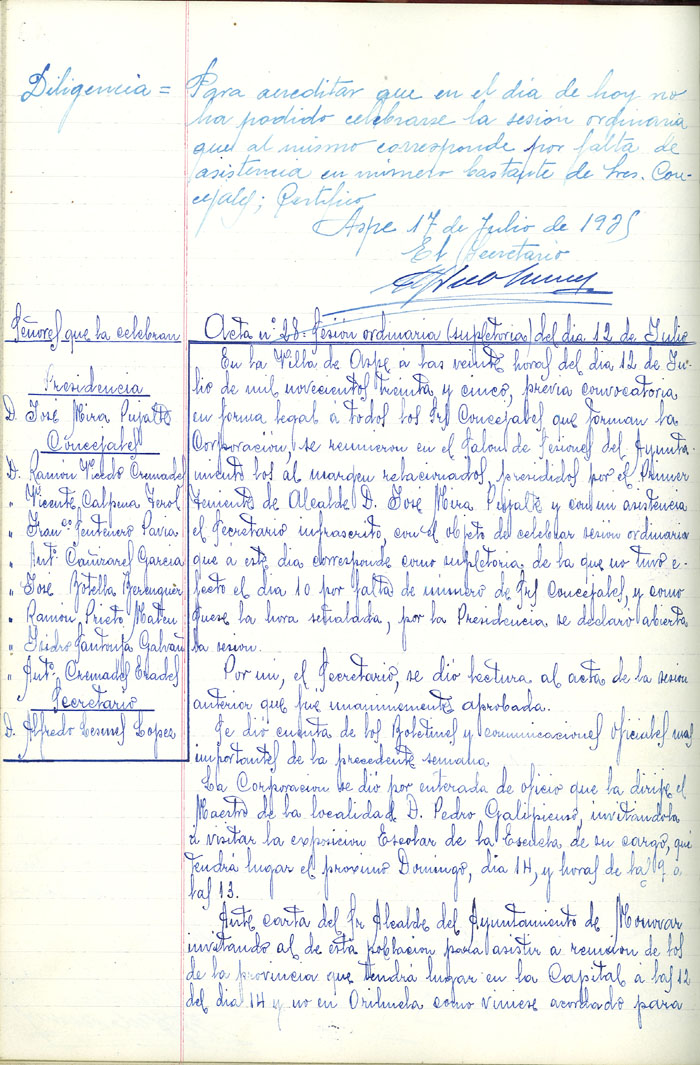 Diligencia =
Para acreditar que en el día de hoy no
ha podido celebrarse la sesión ordinaria
que al mismo corresponde por falta de
asistencia en número bastante de Sres. Con-
cejales; Certifico
Aspe 17 de Julio de 1935
El Secretario
Señores que la celebran
Presidencia
D. José Mira Pujalte
Concejales
D. Ramón Vicedo Cremades
" Vicente Calpena Terol
" Franco Centenero Pavia
" Antº Cañizares Garcia
" José Botella Berenguer
" Ramón Prieto Mateu
" Isidro Santonja Galvañ
" Antº Cremades Erades
Secretario
D. Alfredo Lopez
Acta nº 28. Sesión ordinaria (supletoria) del dia 12 de Julio
En la Villa de Aspe a las veinte horas del dia 12 de Ju-
lio de mil novecientos treinta y cinco, previa convocatoria
en forma legal a todos los Srs Concejales que forman la
Corporación, se reunieron en el Salon de Sesiones del Ayunta-
miento los al margen relacionados, presididos por el Primer
Teniente de Alcalde D. José Mira Pujalte y con mi asistencia
el Secretario infrascrito, con el objeto de celebrar sesion ordinaria
que a este dia corresponde como supletoria de la que no tuvo e-
fecto el dia 10 por falta de número de Srs Concejales, y como
fuese la hora señalada, por la Presidencia se declaró abierta
la sesion.
Por mi, el Secretario, se dio lectura al acta de la sesion
anterior que fue unanimemente aprobada.
Se dió cuenta de los Boletines y comunicaciones oficiales mas
importantes de la precedente semana.
La Corporacion se dió por enterada de oficio que la dirije el
Maestro de la localidad D. Pedro Galipienso, invitandola
a visitar la exposicion Escolar de la Escuela de su cargo, que
tendrá lugar el proximo Domingo, dia 14, y horas de las 9 a
las 13.
Ante carta del Sr Alcalde del Ayuntamiento de Monovar
invitando al de esta poblacion para asistir a reunion de los
de la provincia que tendrá lugar en la Capital a las 12
del dia 14 y no en Orihuela como viniese acordado para